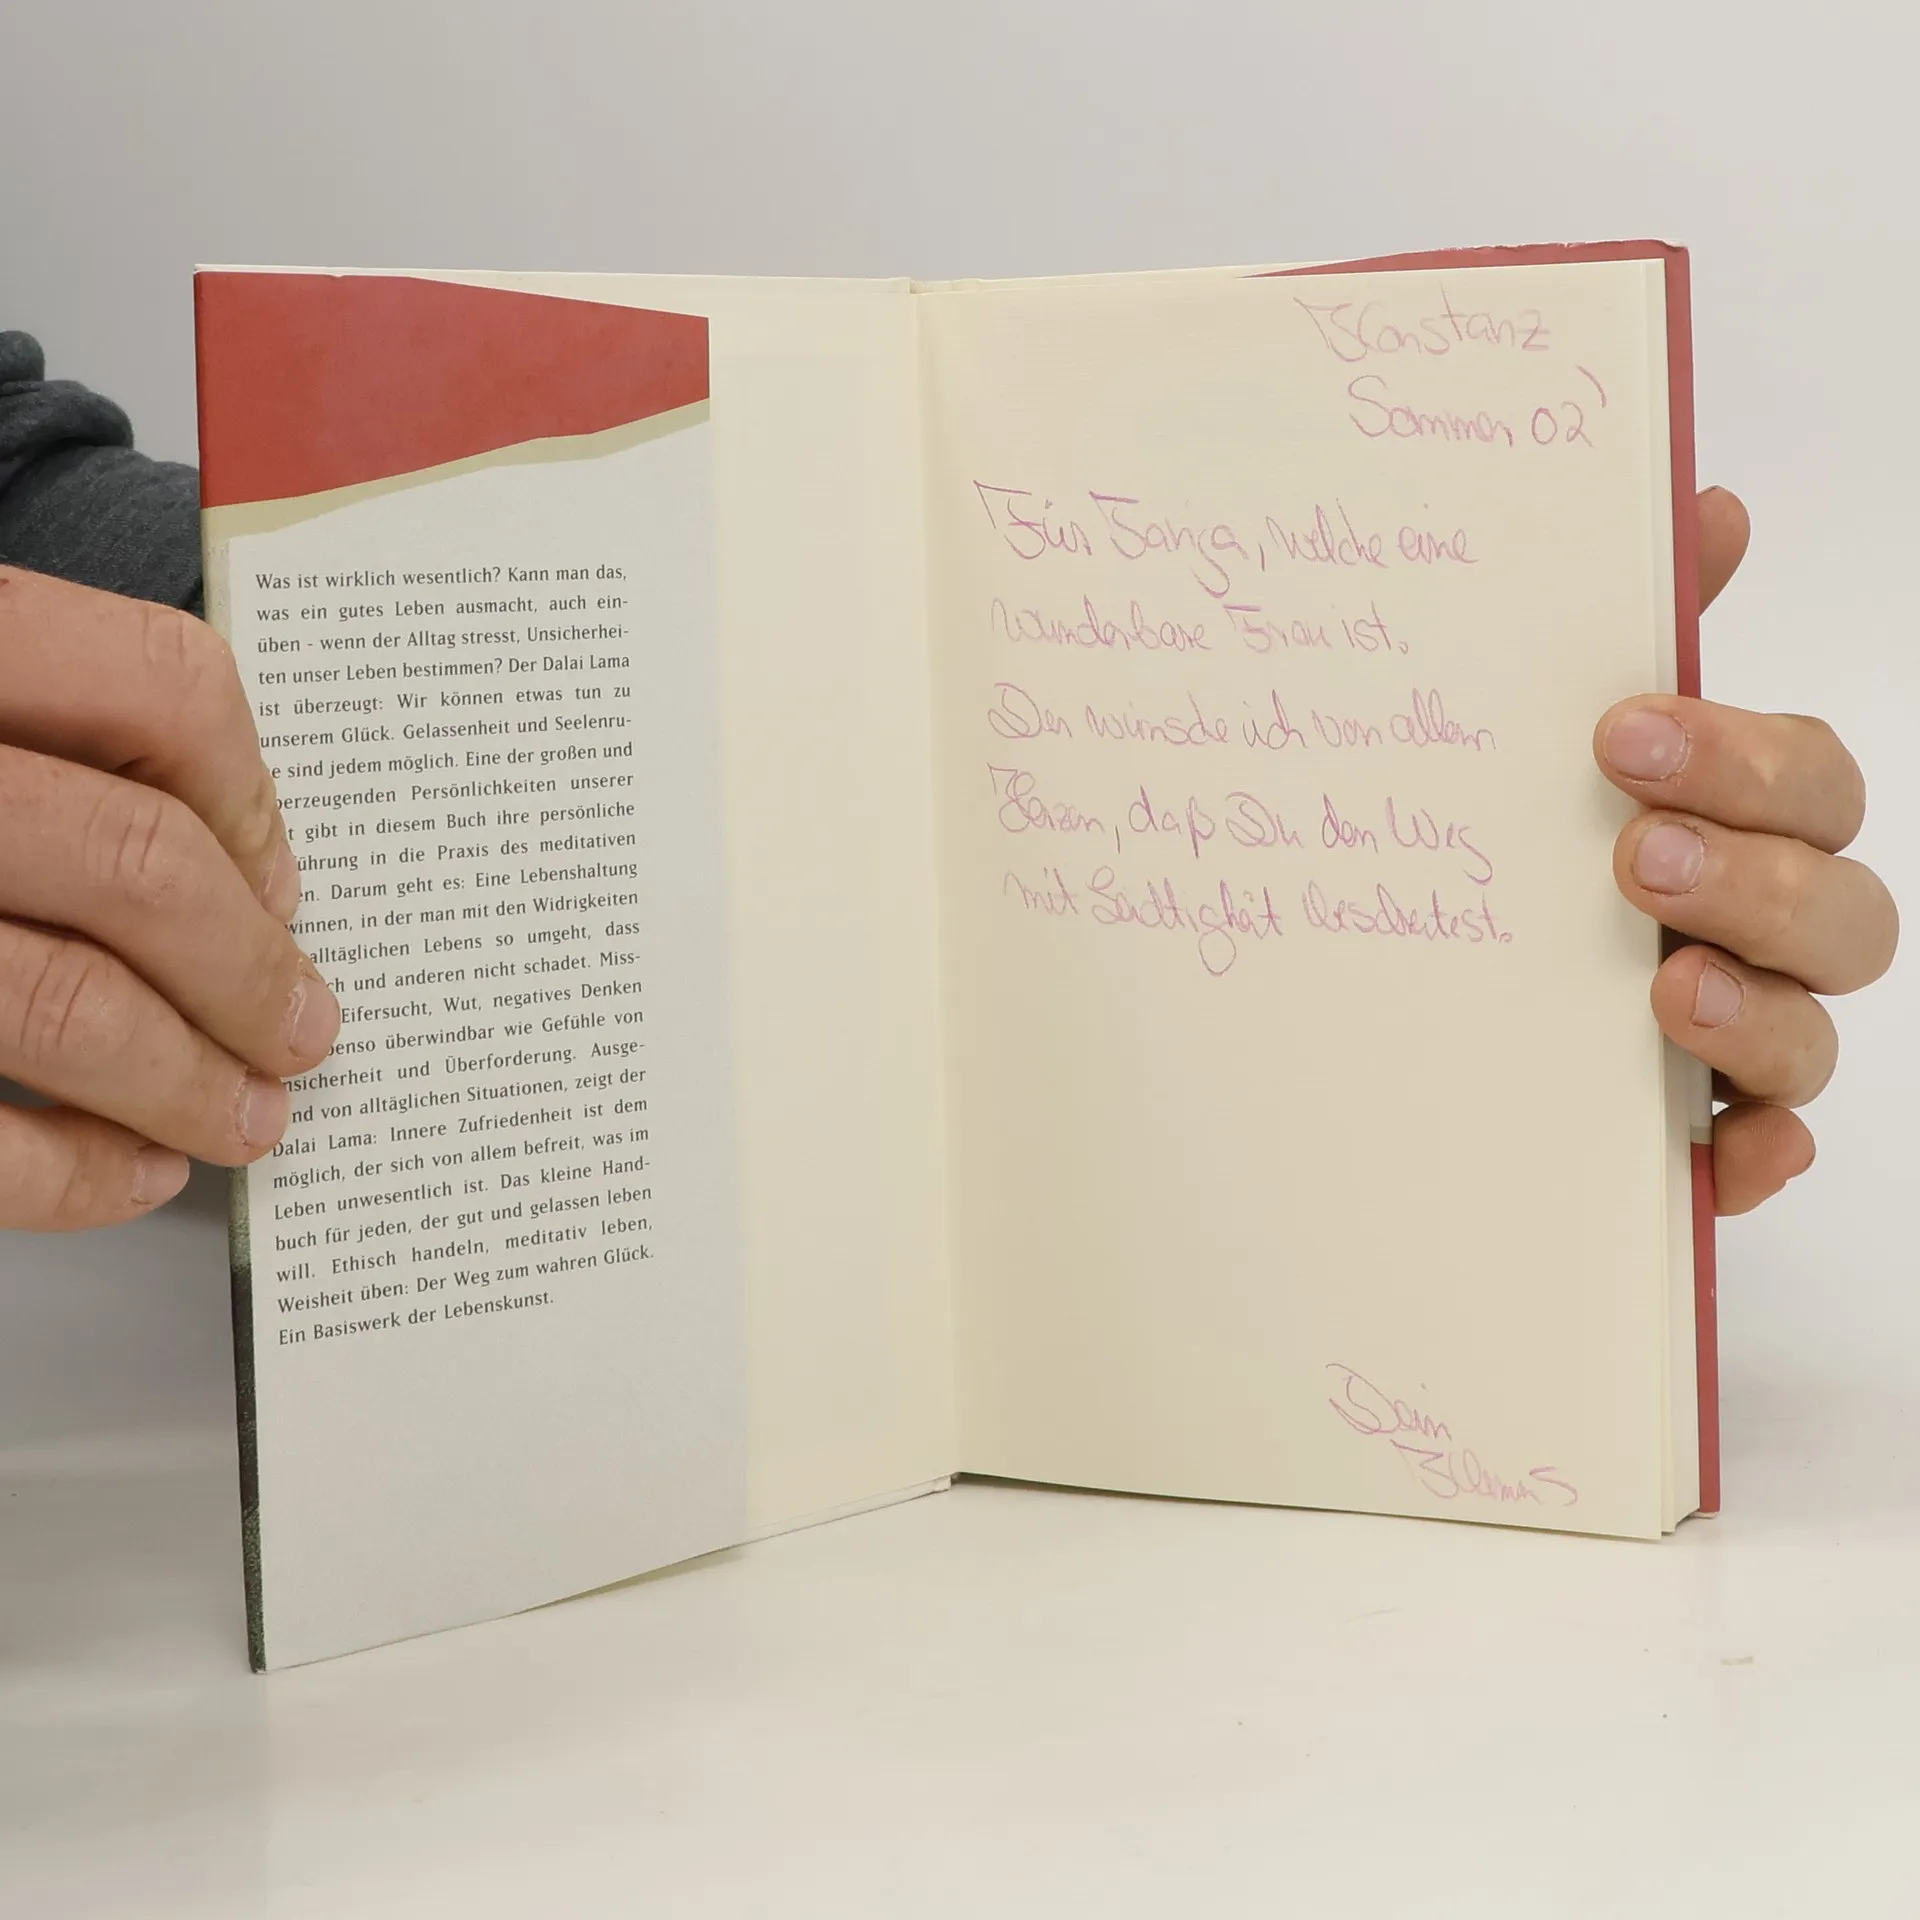 Was ist wirklich wesentlich? Kann man das,
was ein gutes Leben ausmacht, auch ein-
üben - wenn der Alltag stresst, Unsicherhei-
ten unser Leben bestimmen? Der Dalai Lama
ist überzeugt: Wir können etwas tun zu
unserem Glück. Gelassenheit und Seelenru-
e sind jedem möglich. Eine der großen und
berzeugenden Persönlichkeiten unserer
t gibt in diesem Buch ihre persönliche
führung in die Praxis des meditativen
en. Darum geht es: Eine Lebenshaltung
winnen, in der man mit den Widrigkeiten
alltäglichen Lebens so umgeht, dass
ch und anderen nicht schadet. Miss-
Eifersucht, Wut, negatives Denken
benso überwindbar wie Gefühle von
nsicherheit und Überforderung. Ausge-
nd von alltäglichen Situationen, zeigt der
Dalai Lama: Innere Zufriedenheit ist dem
möglich, der sich von allem befreit, was im
Leben unwesentlich ist. Das kleine Hand-
buch für jeden, der gut und gelassen leben
will. Ethisch handeln, meditativ leben,
Weisheit üben: Der Weg zum wahren Glück.
Ein Basiswerk der Lebenskunst.
Konstanz
Sommer 02'
Für Tanja, welche eine
wunderbare Frau ist.
Der wünsche ich von allem
Herzen, daß Du den Weg
mit Leichtigkeit beschreitest.
Dein
Klemens